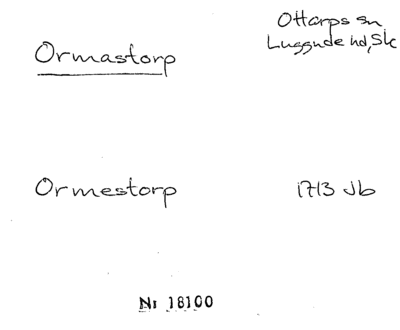 Ottarps sn
Luggude hd, Sk
Ormastorp
Ormestorp
1713 Jb
Nr 18100